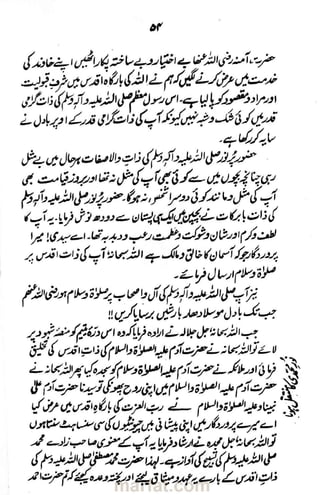 ۵۴
حضرت آمنہ رضی اللہ عنہا بے اختیار و بے ساختہ پکار اٹھیں اپنے خاوند کی
خدمت میں عرض کرنے لگیں کہ ہم نے اللہ کی بارگاہ اقدس میں شرف قبولیت
اور مراد و مقصود کو پا لیا ہے۔ اس رسول معظم صلی اللہ علیہ وآلہ وسلم کی ذات گرامی
قدر میں کوئی شک و شبہ نہیں کیونکہ آپ کی ذات گرامی قدر کے اوپر بادل نے
سایہ کر رکھا ہے۔
حضور پر نور صلی اللہ علیہ وآلہ وسلم کی ذات والا صفات بہرحال میں بے مثل
رہی چنانچہ بچوں میں سے کوئی بھی آپ کی مثل نہ تھا اور بروز قیامت بھی
آپ کی مثل و مانند کوئی دوسرا شخص نہ ہوگا۔ حضور پر نور صلی اللہ علیہ وآلہ وسلم
کی ذات بابرکات نے بچپن میں ایک ہی پستان سے دودھ نوش فرمایا۔ یہ آپ کا
لطف و کرم اور شان و شوکت و عظمت رعب و دبدبہ تھا۔ اے سیدی! میرا
پروردگار جو کہ آسمان کا خالق و مالک ہے اللہ سبحانہٗ آپ کی ذات اقدس پر
صلوٰۃ و سلام ارسال فرمائے۔
نیز آپ صلی اللہ علیہ وآلہ وسلم کی آل و اصحاب پر صلوٰۃ و سلام ہو رضی اللہ عنھم
جب تک بادل موسلا دھار بارشیں برسایا کریں!!
جب اللہ سبحانہٗ جل جلالہ نے ارادہ فرمایا کہ وہ اس در یتیم کو منصہ شہود پر
لائے تو اللہ سبحانہ نے حضرت آدم علیہ الصلوٰۃ والسلام کی ذات اقدس کی تخلیق
فرمائی اور ملائکہ نے حضرت آدم علیہ الصلوٰۃ والسلام کو سجدہ کیا پھر اللہ سبحانہ نے
حضرت آدم علیہ الصلوٰۃ والسلام میں اپنی روح پھونکی تو سیدنا حضرت آدم علی
نبینا وعلیہ الصلوٰۃ والسلام نے رب العزت کی بارگاہ اقدس میں عرض کیا
اے میرے پروردگار میں اپنی پیشانی میں چیونٹیوں کی سی سنسناہٹ سنتا ہوں
تو اللہ سبحانہٗ جل مجدہ نے ارشاد فرمایا یہ آپ کے معنوی صاحبزادے محمد
صلی اللہ علیہ وسلم کی تسبیح کی آواز ہے۔ لہٰذا حضرت محمد مصطفیٰ صلی اللہ علیہ وسلم کی
ذات اقدس کے بارے میں عہد و میثاق لیجئے اور پختہ وعدہ لیجئے کہ تم حضرت احمد